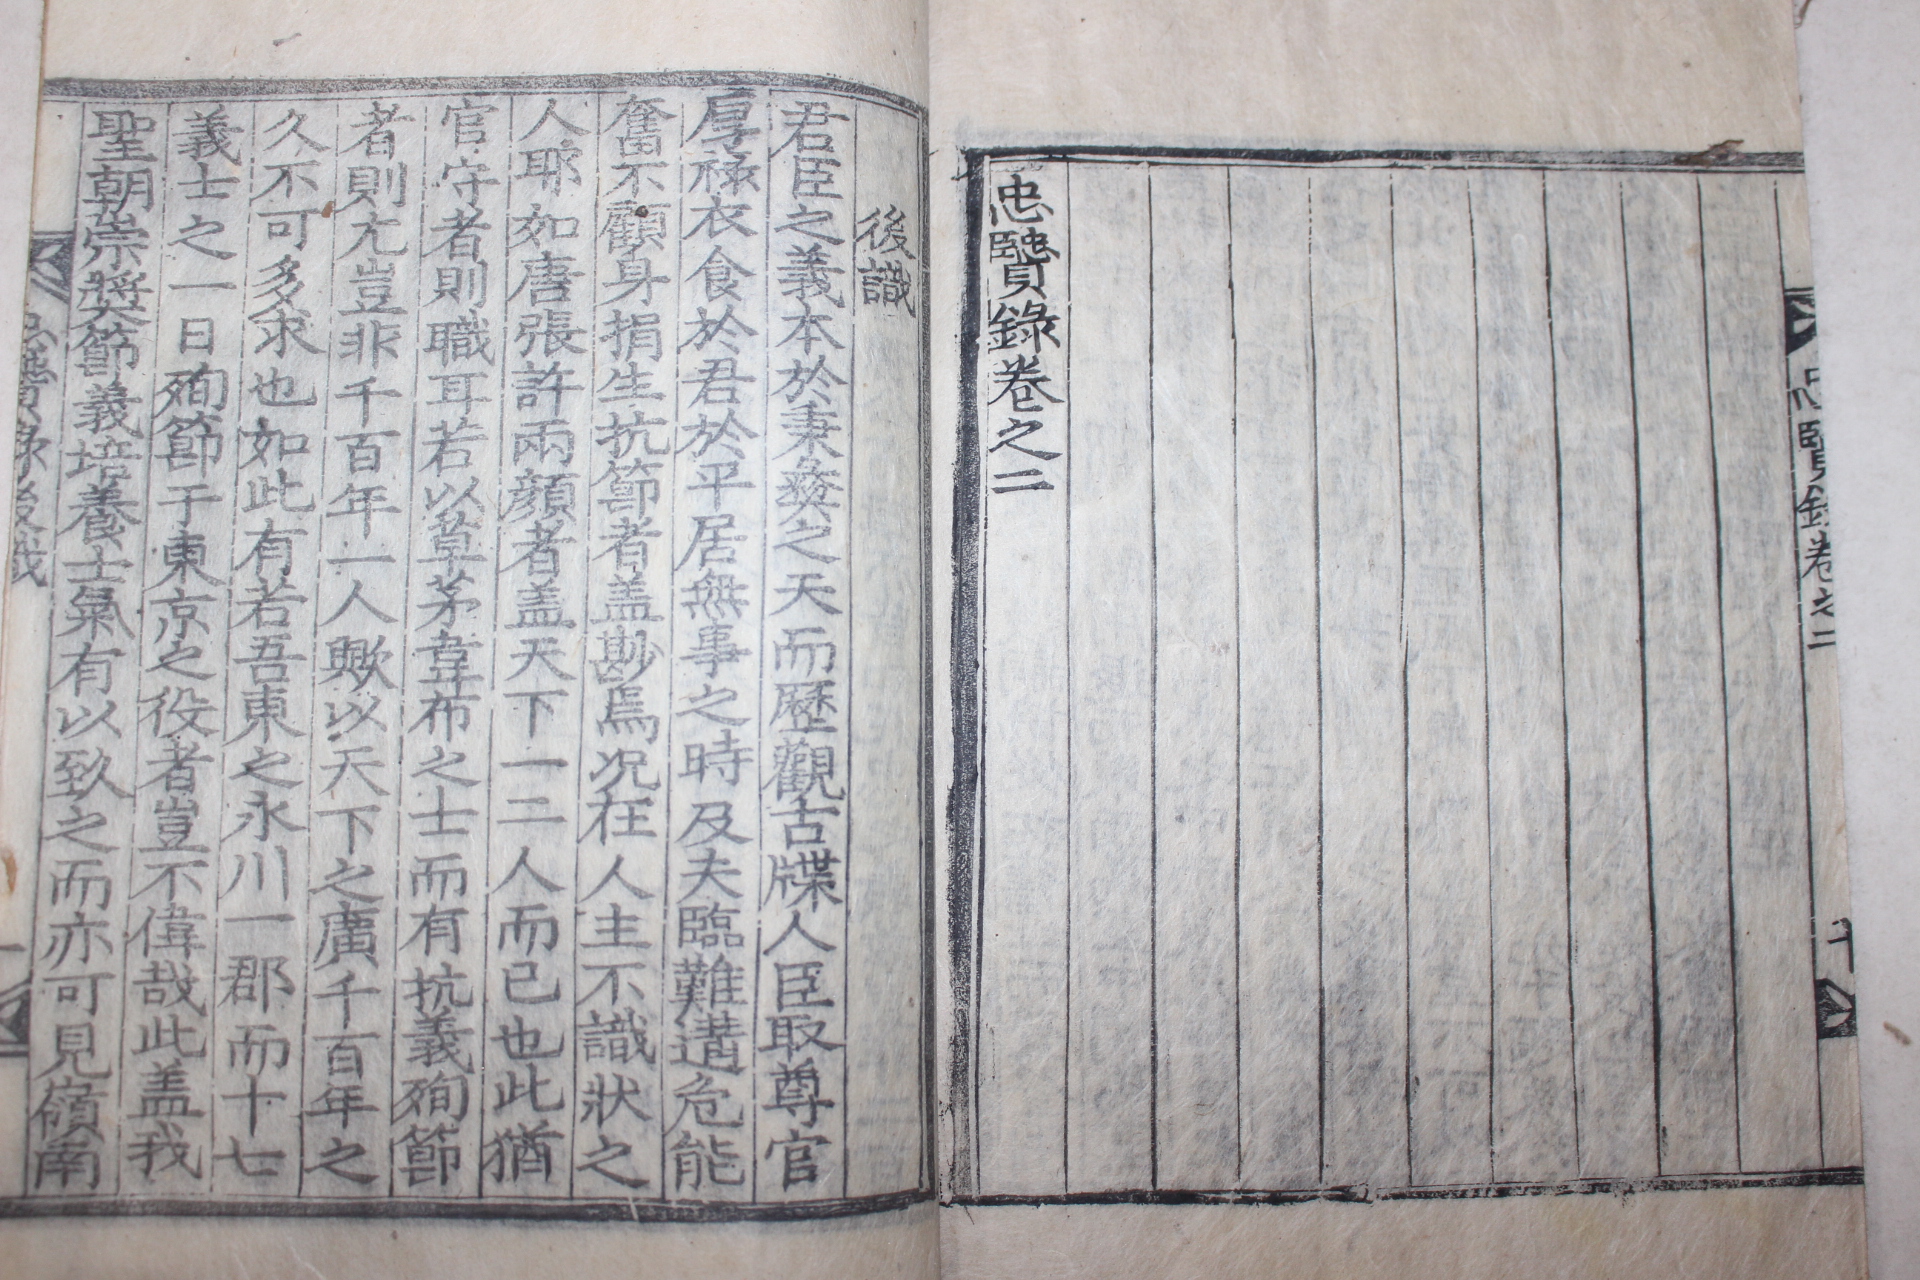 忠賢錄卷之二
忠賢錄卷之二
十
後識
君臣之義本於秉彝之天而歷觀古牒人臣取尊官
厚祿衣食於君於平居無事之時及夫臨難遘危能
奮不顧身捐生抗節者盖尠焉况在人主不識狀之
人耶如唐張許兩顔者盖天下一二人而已也此猶
官守者則職耳若以草茅韋布之士而有抗義殉節
者則尤豈非千百年一人歟以天下之廣千百年之
久不可多求也如此有若吾東之永川一郡而十七
義士之一日殉節于東京之役者豈不偉哉此盖我
聖朝崇奬節義培養士氣有以致之而亦可見嶺南
忠賢錄後識
一